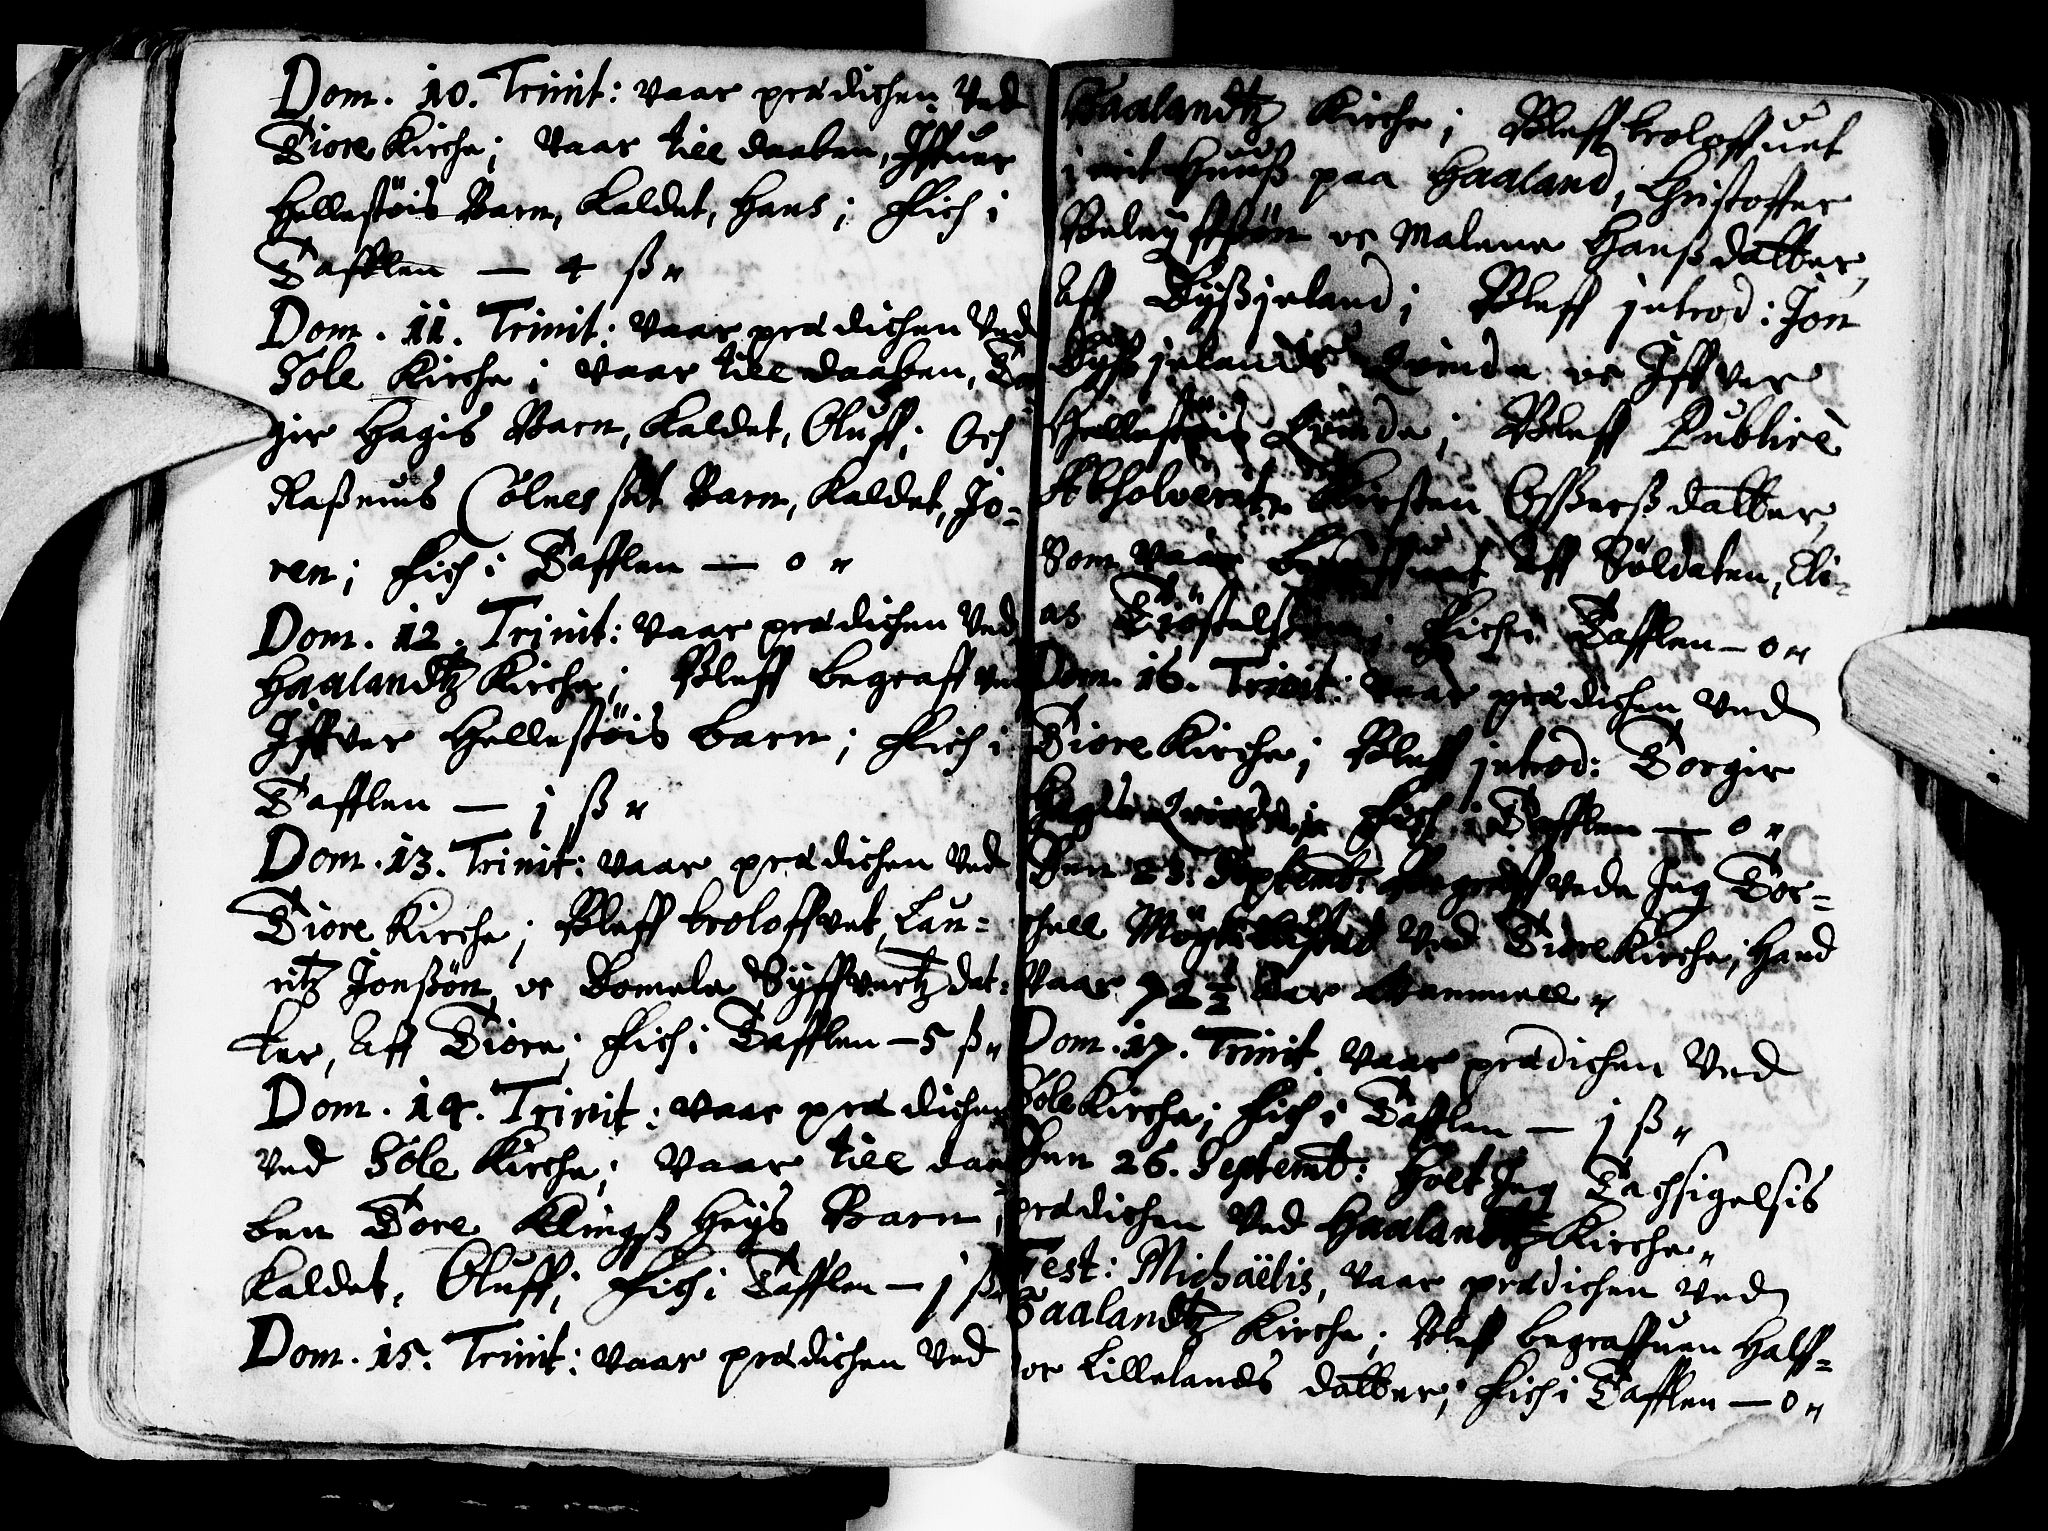 Dom. 10. Trinit: vaar prædichen Ved
Tiore Kirche; Vaar till daaben, Iffuer
Hellestöis Barn, Kaldet, Hans; Fich i
Tafflen — 4 ß
Dom. 11. Trinit: Vaar prædichen Ved
Sole Kirche; Vaar till daaben, Tor
gir Hagis Barn, Kaldet, Oluff; Och
Raßmus Sölnes sit Barn, Kaldet, Jo-
ren; Fich i Tafflen — 0
Dom. 12. Trinit: Vaar prædichen Ved
Haalandtz Kirche; Bleff begraffven
Iffver Hellestöis barn; Fich i
Tafflen — j ß
Dom. 13. Trinit: Vaar prædichen Ved
Tiore Kirche; Bleff troloffvet, Lau-
ritz Jonßön, oc Bomela Syffvertz dat-
ter, Aff Tiora; Fich i Tafflen — 5 ß
Dom. 14. Trinit: Vaar prædichen
Ved Sole Kirche; Vaar till daa
ben Tore Klingß Heÿs Barn,
Kaldet, Oluff; Fich i Tafflen — j ß
Dom. 15. Trinit: Vaar prædichen Ved
Haalandtz Kirche; Bleff troloffuet
i mit Huuß paa Haaland, Christoffer
oc Malene Hanßdatter,
Aff Byßieland; Bleff introd: Jon
Byßielands Qvinde oc Iffver
Hellestöis Qvinde; Bleff Publicè
Absolverit, Kirsten datter,
Som Vaar Aff Soldaten, Eli-
as Fich i Tafflen — 0
Dom. 16. Trinit: Vaar prædichen Ved
Tiore Kirche; Bleff introd: Torgir
Hagis Qvinde; Fich i Tafflen — 0
Den 23. Septemb: Begraffvede Jeg Tor-
chell Ved Tiore Kirche; Hand
Vaar 72 1/2 Aar Gammell
Dom. 17. Trinit. Vaar prædichen Ved
Sole Kirche; Fich i Tafflen — j ß
Den 26. Septemb: Holt Jeg Tachsigelsis
prædichen Ved Haalandtz Kirche
Fest: Michaëlis, Vaar prædichen Ved
Haalandtz Kirche; Bleff begraffuen Half-
or Lillelands datter; Fich i Tafflen — 0